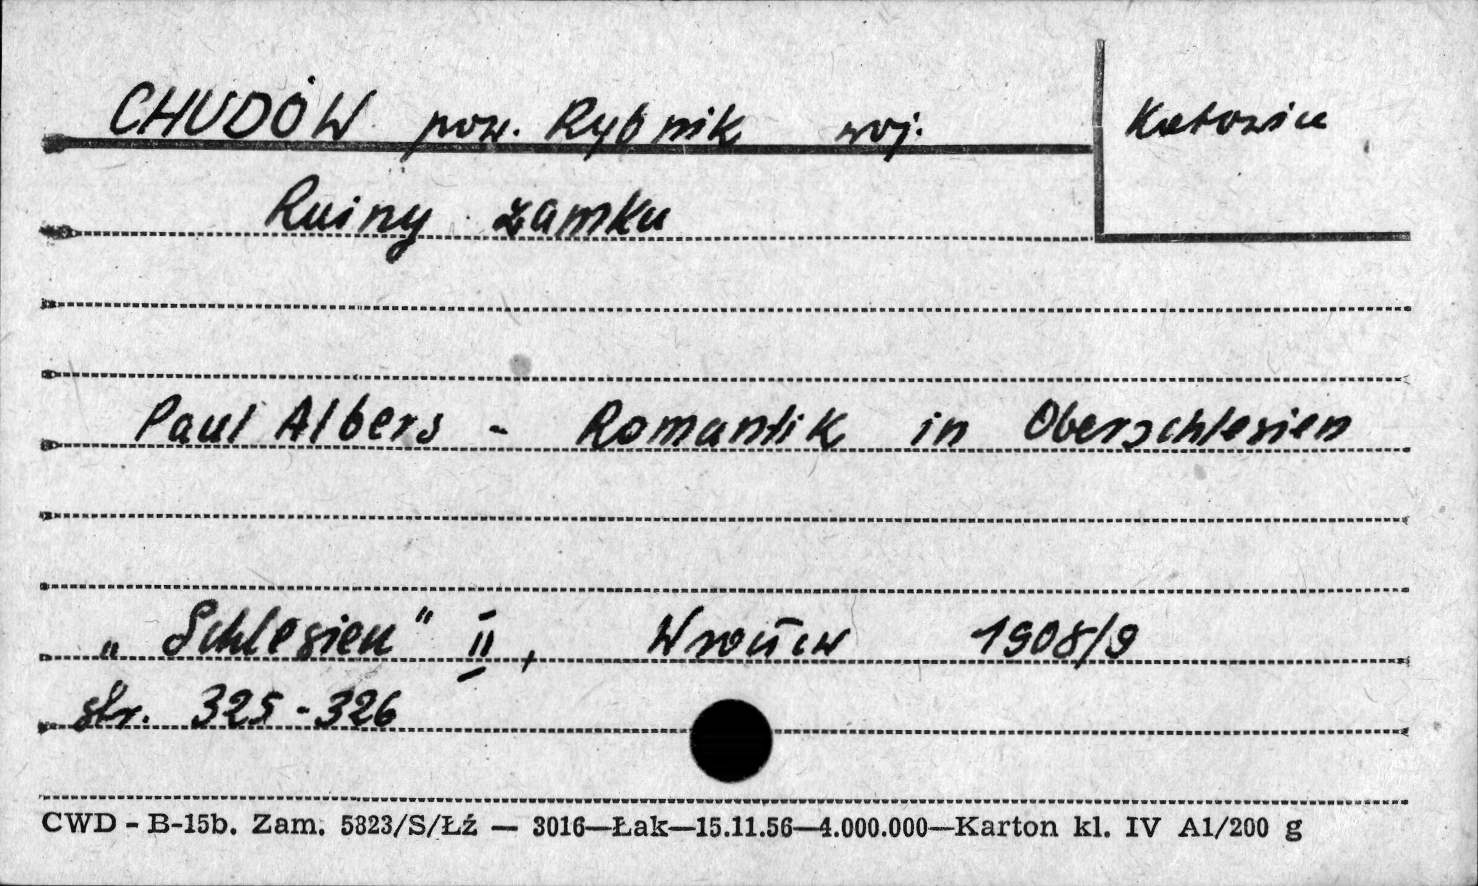 CHUDÓW pow. Rybnik woj. Katowice
Ruiny zamku
Paul Albers - Romantik in Oberschlesien
„Schlesien" II, Wrocław 1908/9
str. 325-326
CWD - B-15b. Zam. 5823/S/Łź — 3016—Łak—15.11.56—4.000.000—Karton kl. IV A1/200 g